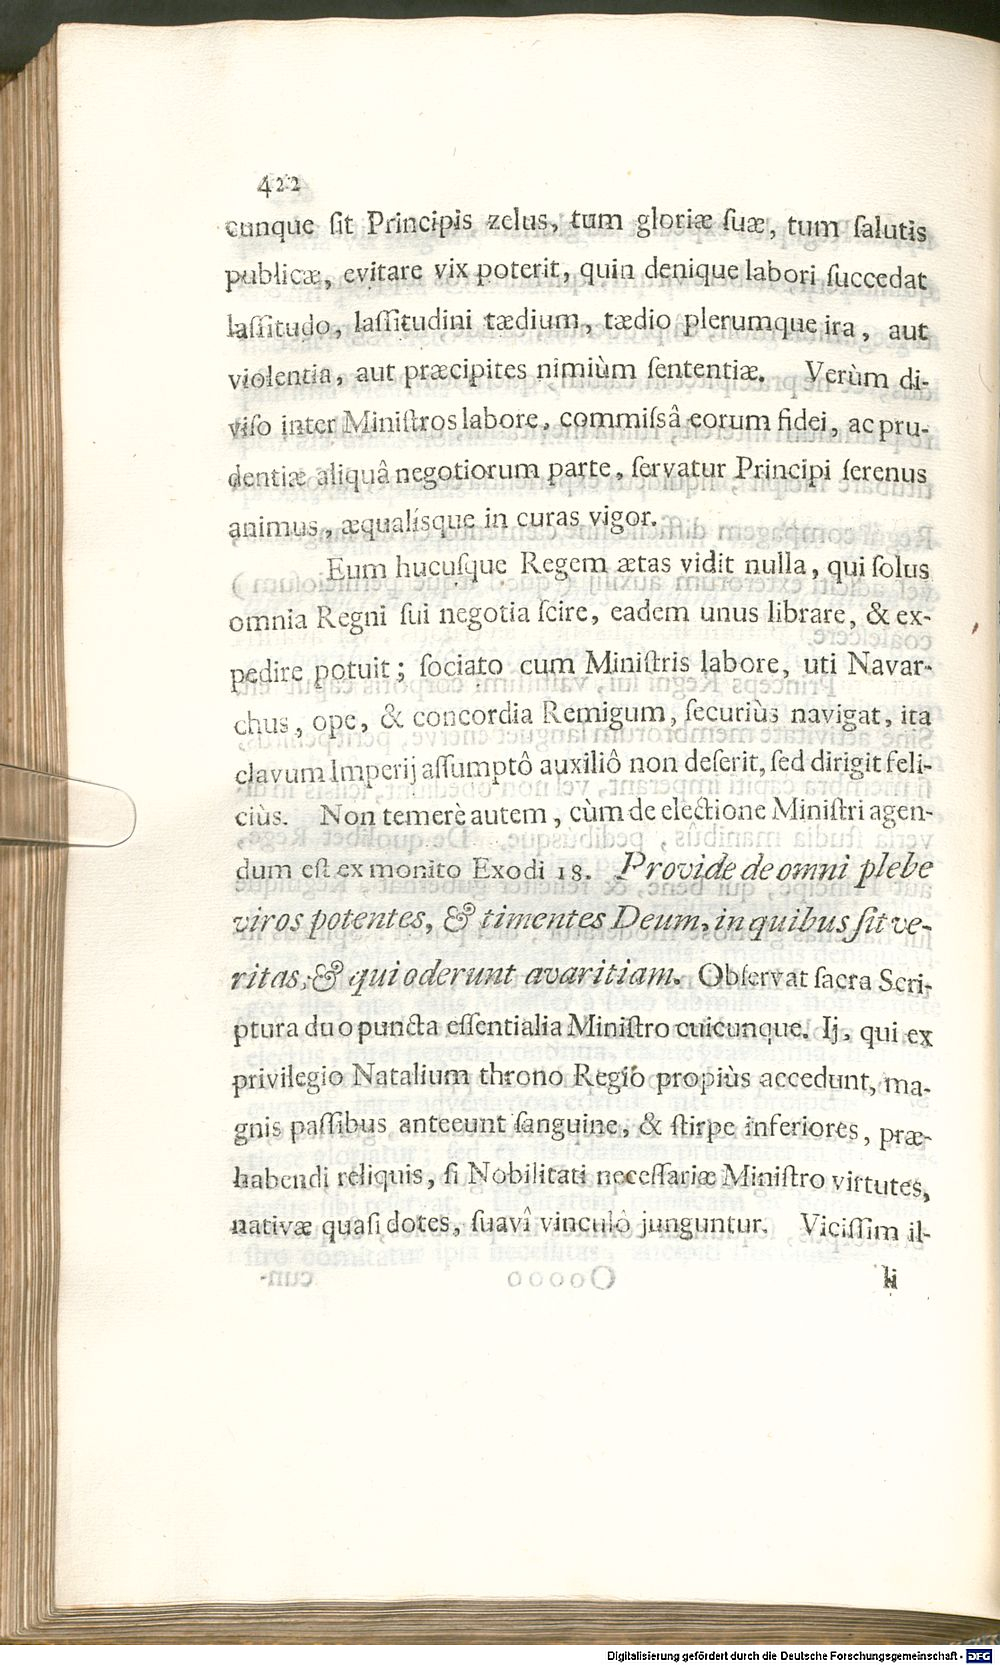 422
cunque ſit Principis zelus, tum gloriæ ſuæ, tum ſalutis
publicæ, evitare vix poterit, quin denique labori ſuccedat
laſſitudo, laſſitudini tædium, tædio plerumque ira, aut
violentia, aut præcipites nimiùm ſententiæ. Verùm di-
viſo inter Miniſtros labore, commiſsâ eorum fidei, ac pru-
dentiæ aliquâ negotiorum parte, ſervatur Principi ſerenus
animus, æqualíſque in curas vigor.
Eum hucuſque Regem ætas vidit nulla, qui ſolus
omnia Regni ſui negotia ſcire, eadem unus librare, & ex-
pedire potuit; ſociato cum Miniſtris labore, uti Navar-
chus, ope, & concordia Remigum, ſecuriùs navigat, ita
clavum Imperij aſſumptô auxiliô non deſerit, ſed dirigit feli-
ciùs. Non temerè autem, cùm de electione Miniſtri agen-
dum eſt ex monito Exodi 18. Provide de omni plebe
viros potentes, & timentes Deum, in quibus ſit ve-
ritas, & qui oderunt avaritiam. Obſervat ſacra Scri-
ptura duo puncta eſſentialia Miniſtro cuicunque. Ij, qui ex
privilegio Natalium throno Regio propiùs accedunt, ma-
gnis paſſibus anteeunt ſanguine, & ſtirpe inferiores, præ-
habendi reliquis, ſi Nobilitati neceſſariæ Miniſtro virtutes,
nativæ quaſi dotes, ſuavî vinculô junguntur. Viciſſim il-
li
Digitalisierung gefördert durch die Deutsche Forschungsgemeinschaft - DFG